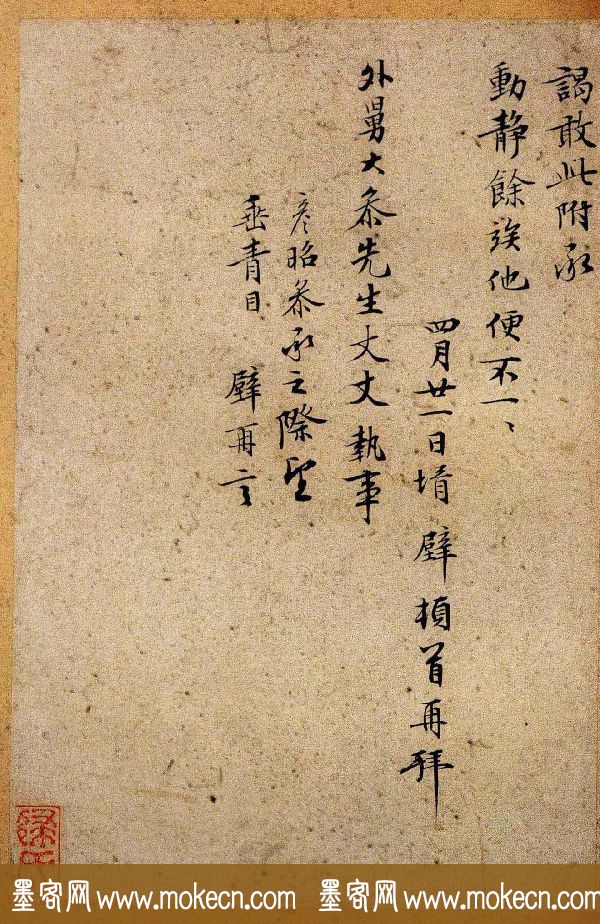 謁敢此附承
動靜餘唉他便不一〻
四月廿一日壻璧頓首再拜
外舅大叅先生丈丈執事
彥昭叅承之際望
垂青目　璧再言
墨客网 www.mokecn.com 墨客网 www.mokecn.com